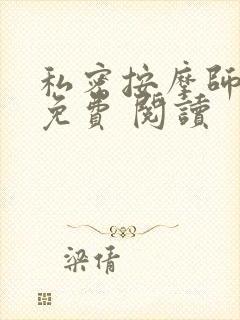 私密按摩師
免費 閱讀
梁倩